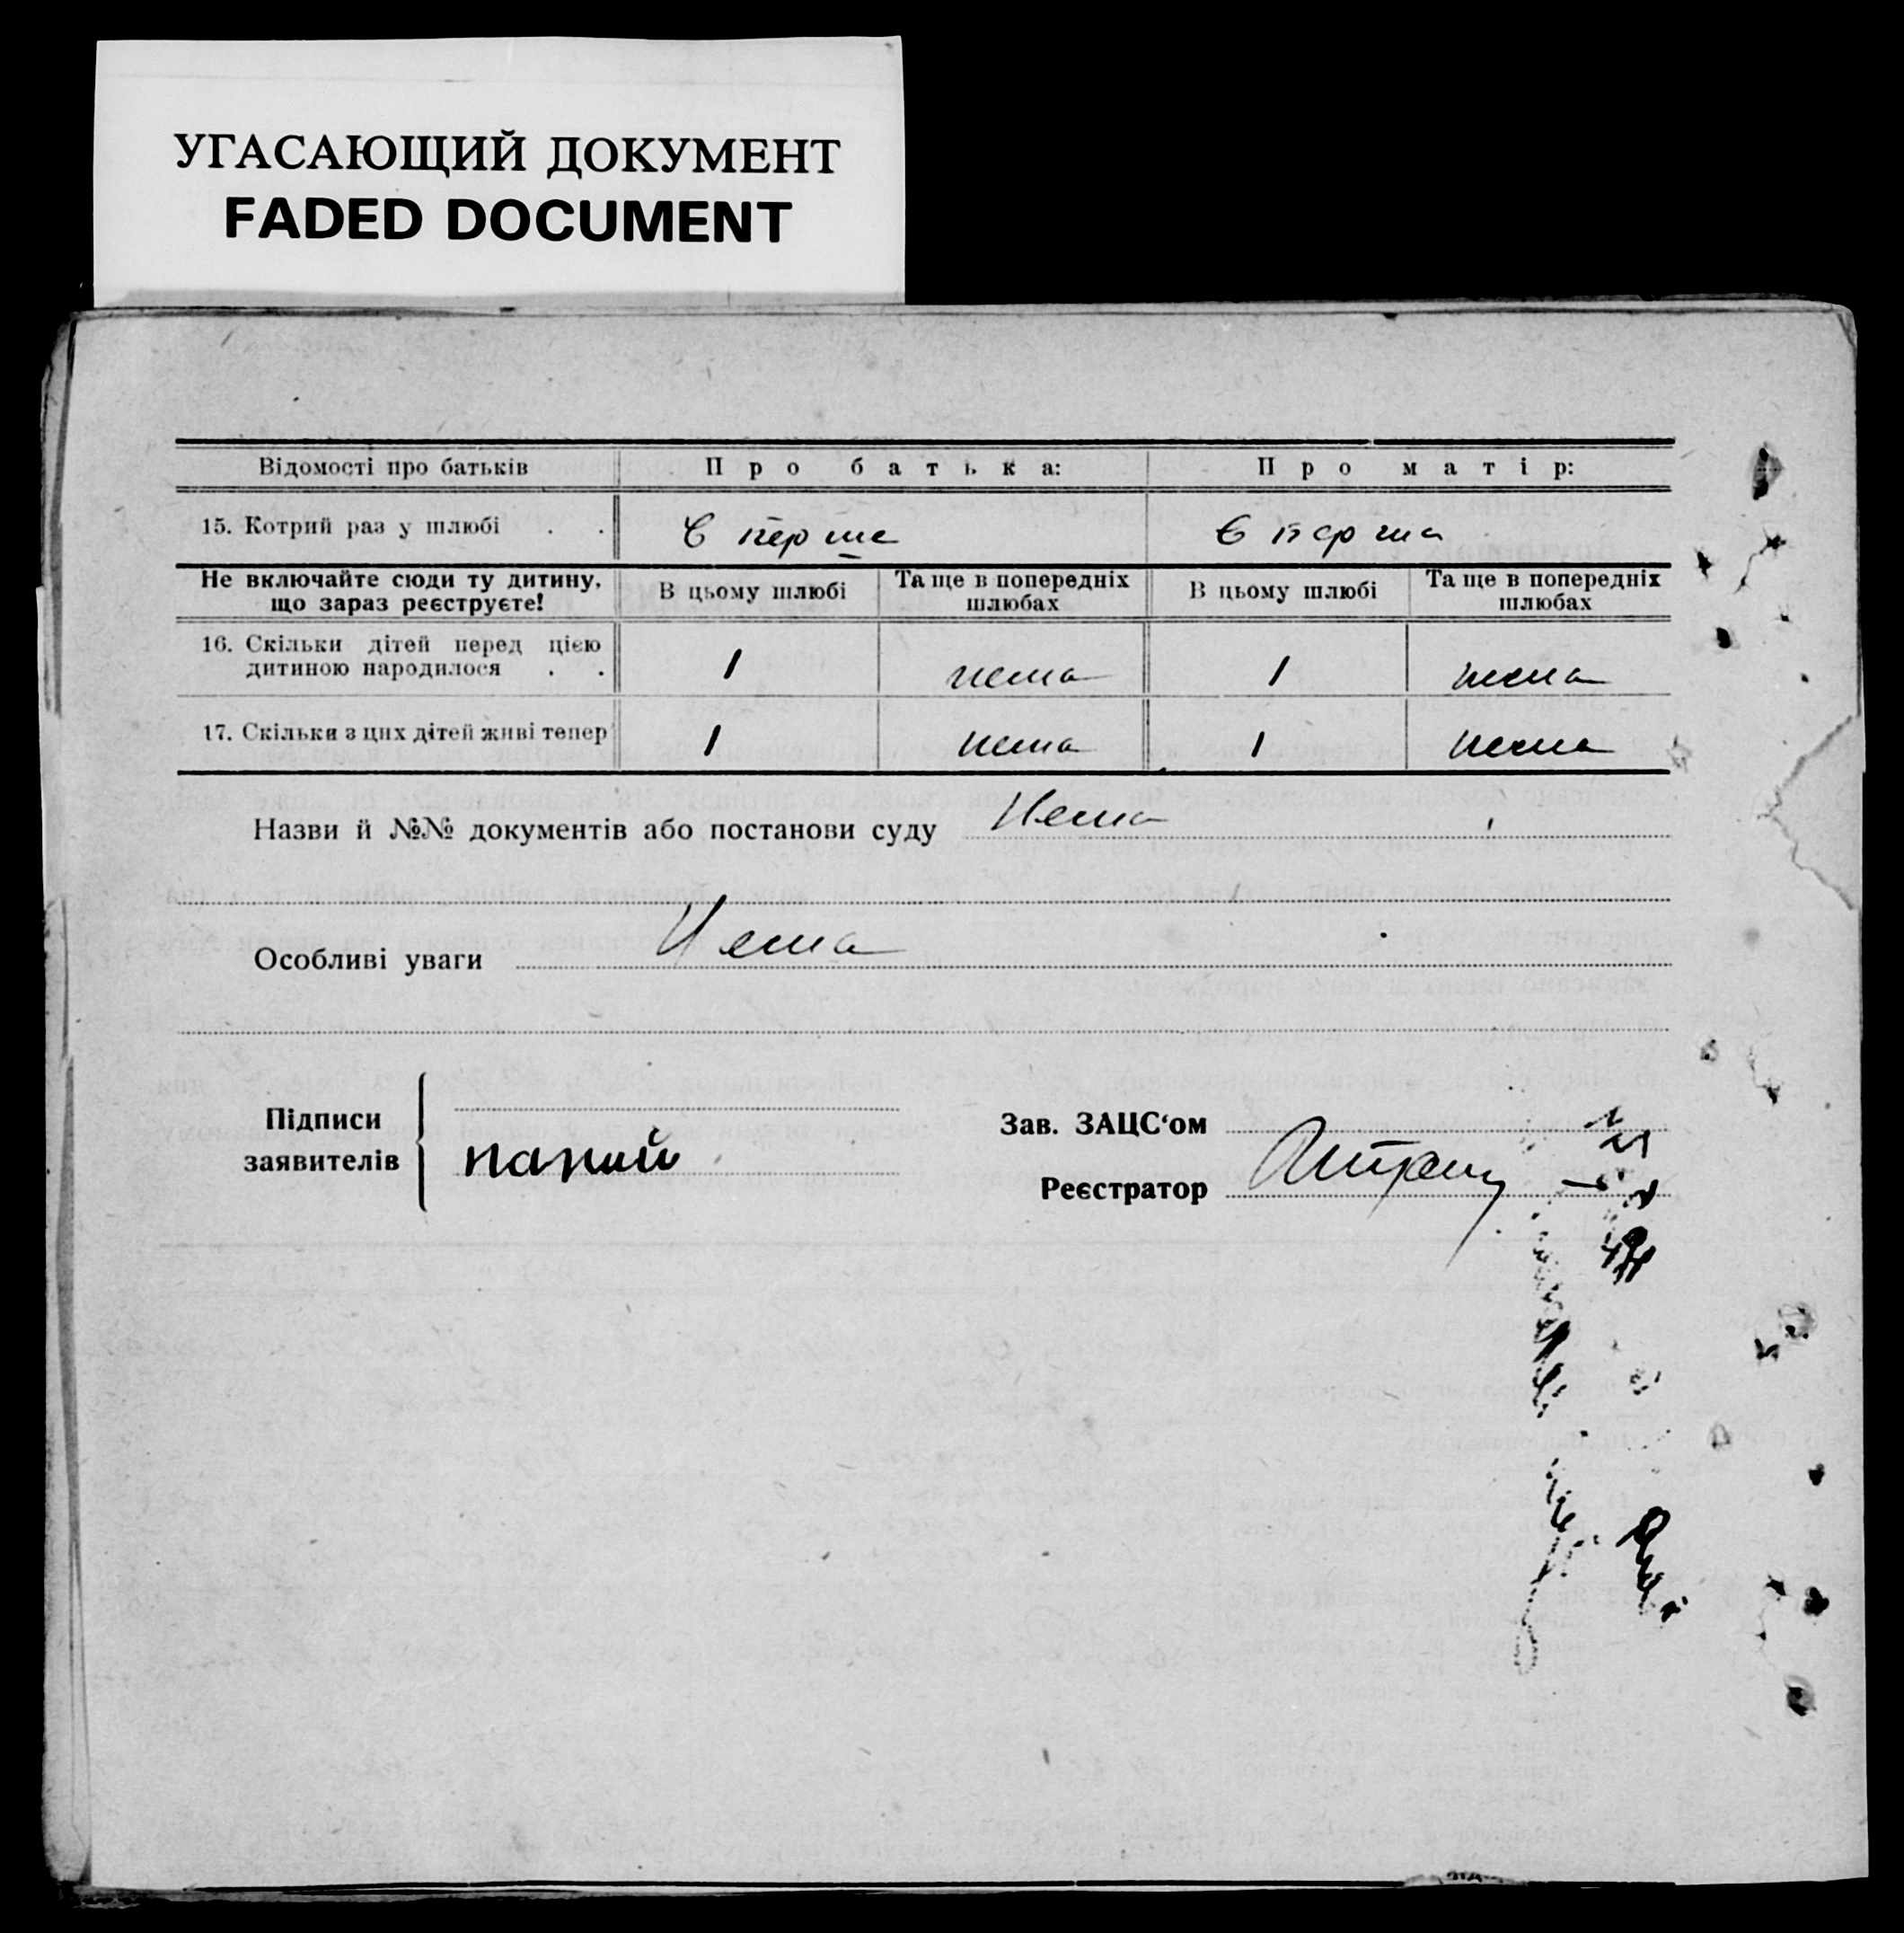 УГАСАЮЩИЙ ДОКУМЕНТ
FADED DOCUMENT
Відомості про батьків Про батька: Про матір:
15. Котрий раз у шлюбі . . в перше в перше
Не включайте сюди ту дитину, що зараз реєструєте! В цьому шлюбі Та ще в попередніх шлюбах В цьому шлюбі Та ще в попередніх шлюбах
16. Скільки дітей перед цією
дитиною народилося . . 1 нема 1 нема
17. Скільки з цих дітей живі тепер 1 нема 1 нема
Назви й №№ документів або постанови суду Нема
Особливі уваги Нема
Підписи
заявителів
Зав. ЗАЦС'ом
Реєстратор